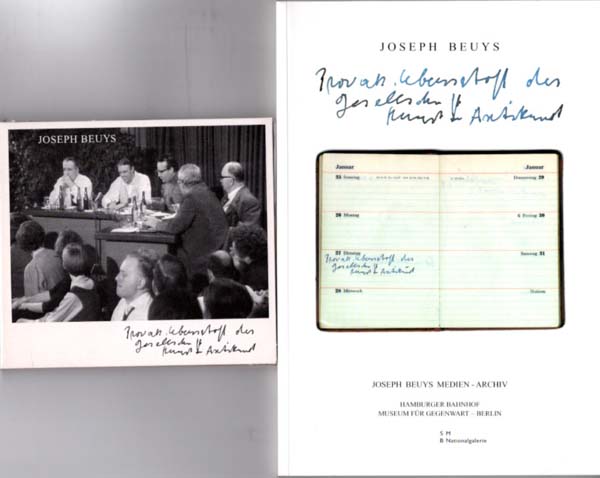 JOSEPH BEUYS
Provok. Lebensstoff der
Gesellschaft
Kunst u Antikunst
JOSEPH BEUYS
Provok. Lebensstoff der
Gesellschaft
Kunst u Antikunst
Januar
25 Sonntag
26 Montag
27 Dienstag
Provok. Lebensstoff der
Gesellschaft
Kunst u Antikunst
28 Mittwoch
Januar
Donnerstag 29
Freitag 30
Samstag 31
Notizen
JOSEPH BEUYS MEDIEN - ARCHIV
HAMBURGER BAHNHOF
MUSEUM FÜR GEGENWART – BERLIN
S M
B Nationalgalerie